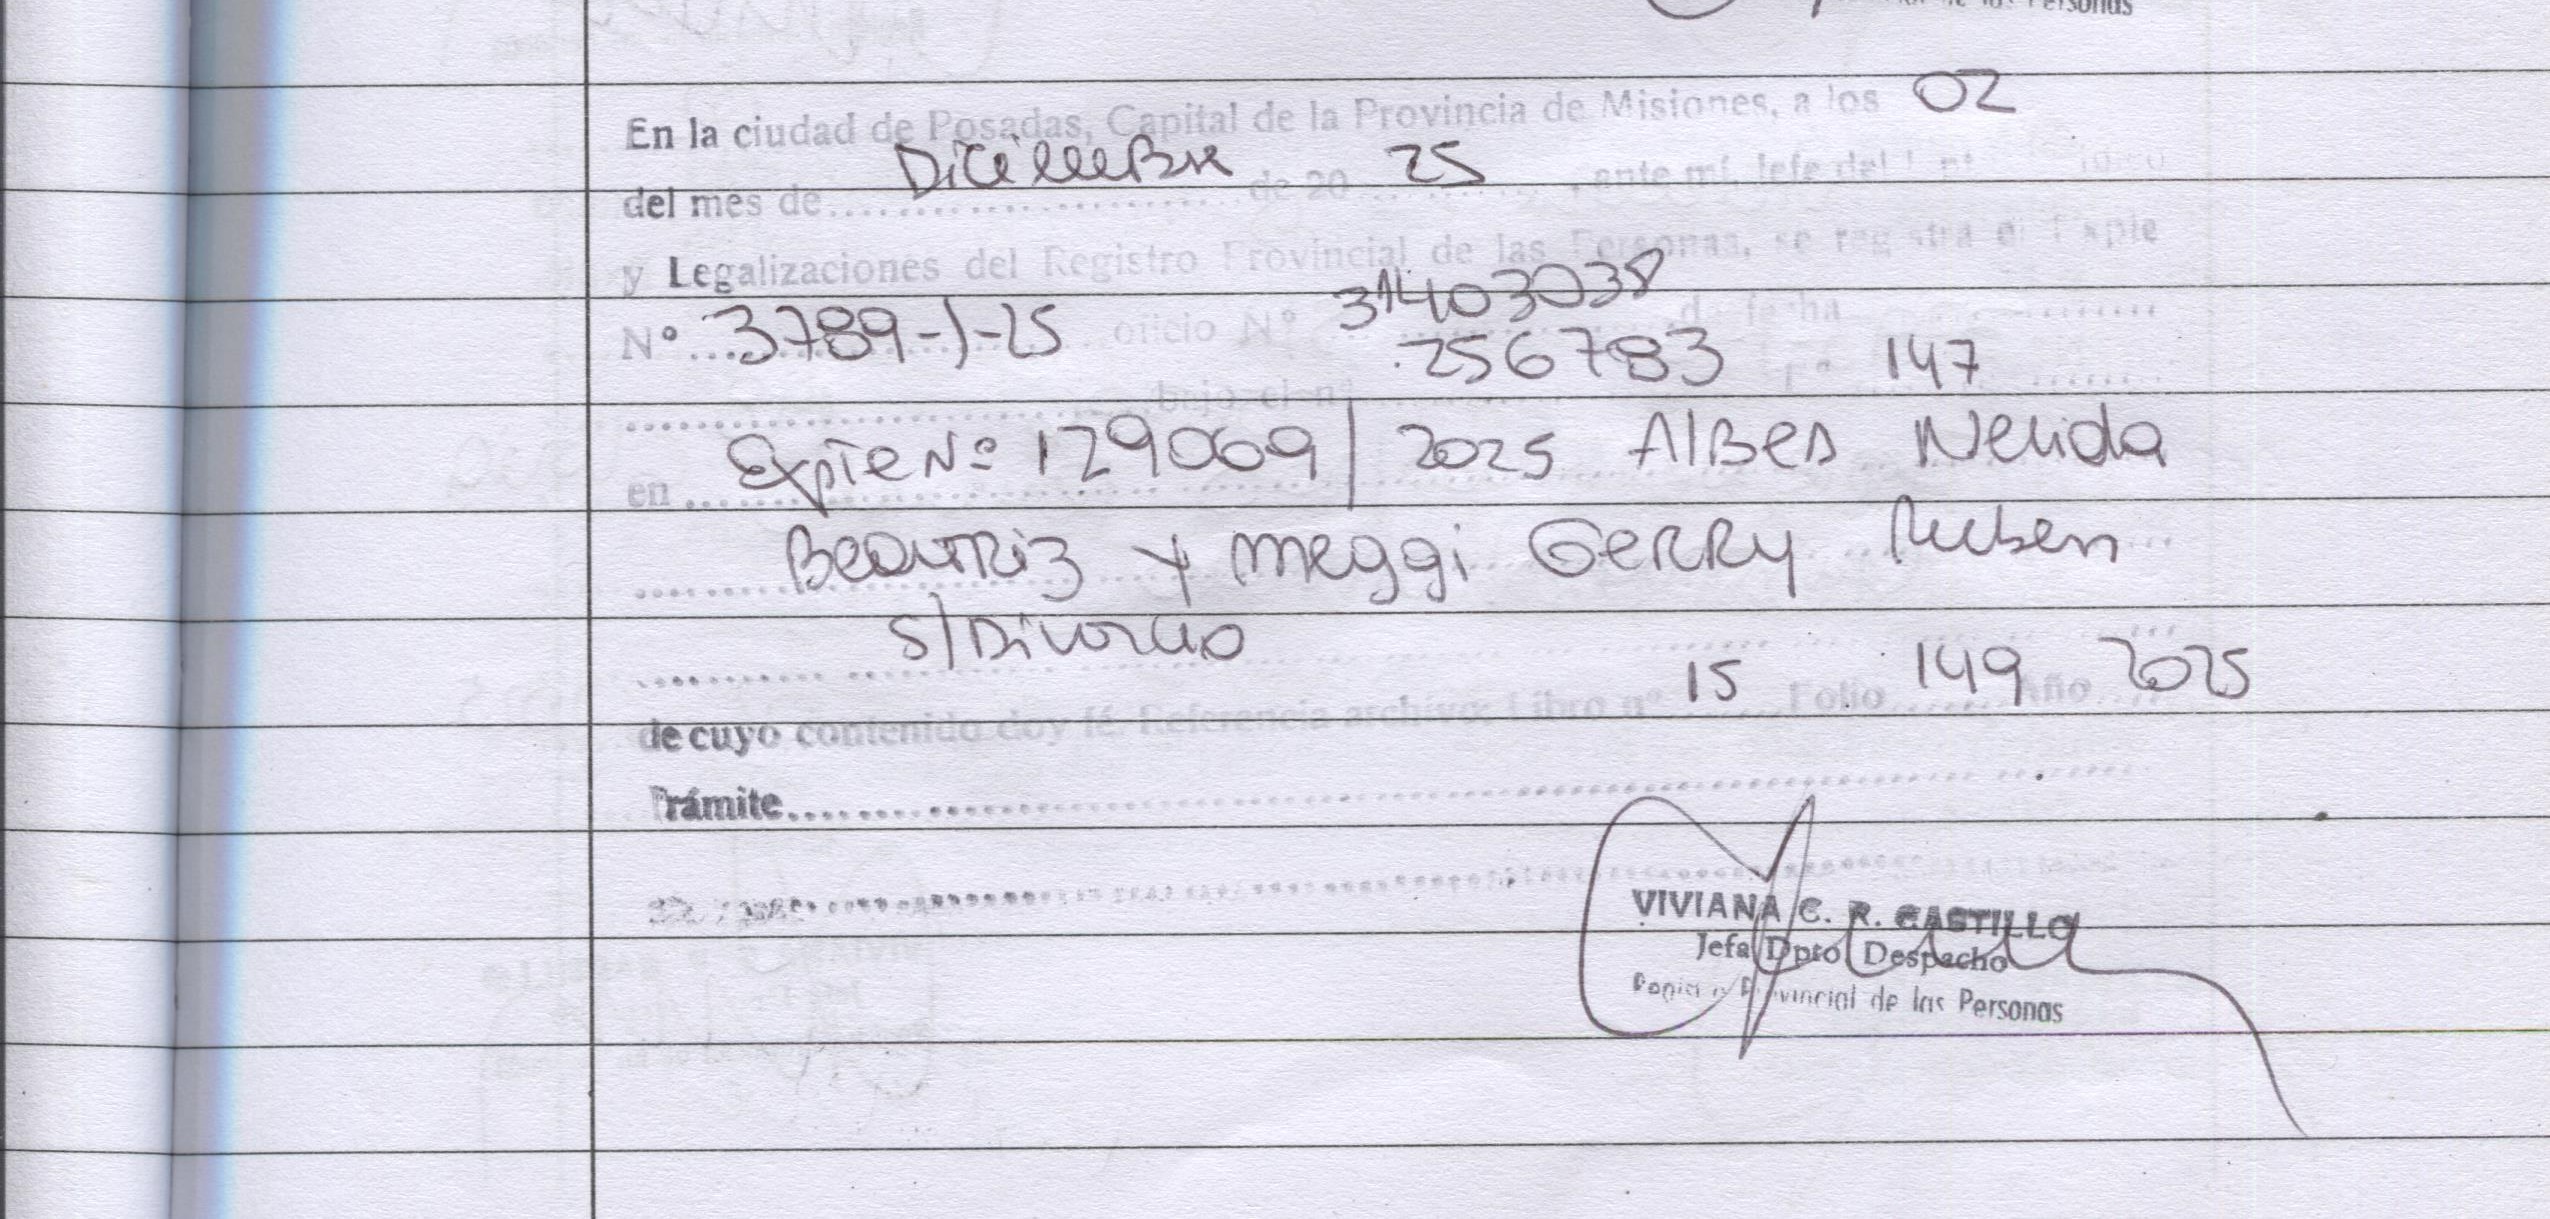 de las Personas
En la ciudad de Posadas, Capital de la Provincia de Misiones, a los 02
del mes de Diciembre de 20 25, ante mí, Jefe del
y Legalizaciones del Registro Provincial de las Personas, se registra el Expte
Nº 3789-J-25 oficio Nº 31403038 de fecha
bajo el nº 256783 Fº 147
en Expte Nº 129069/2025 Albes Nelida
Beatriz y Meggi Gerry Ruben
S/Divorcio
de cuyo contenido doy fé. Referencia archivo: Libro nº 15 Folio 149 Año 2025
Trámite
VIVIANA C. R. CASTILLO
Jefa Dpto Despacho
Provincial de las Personas